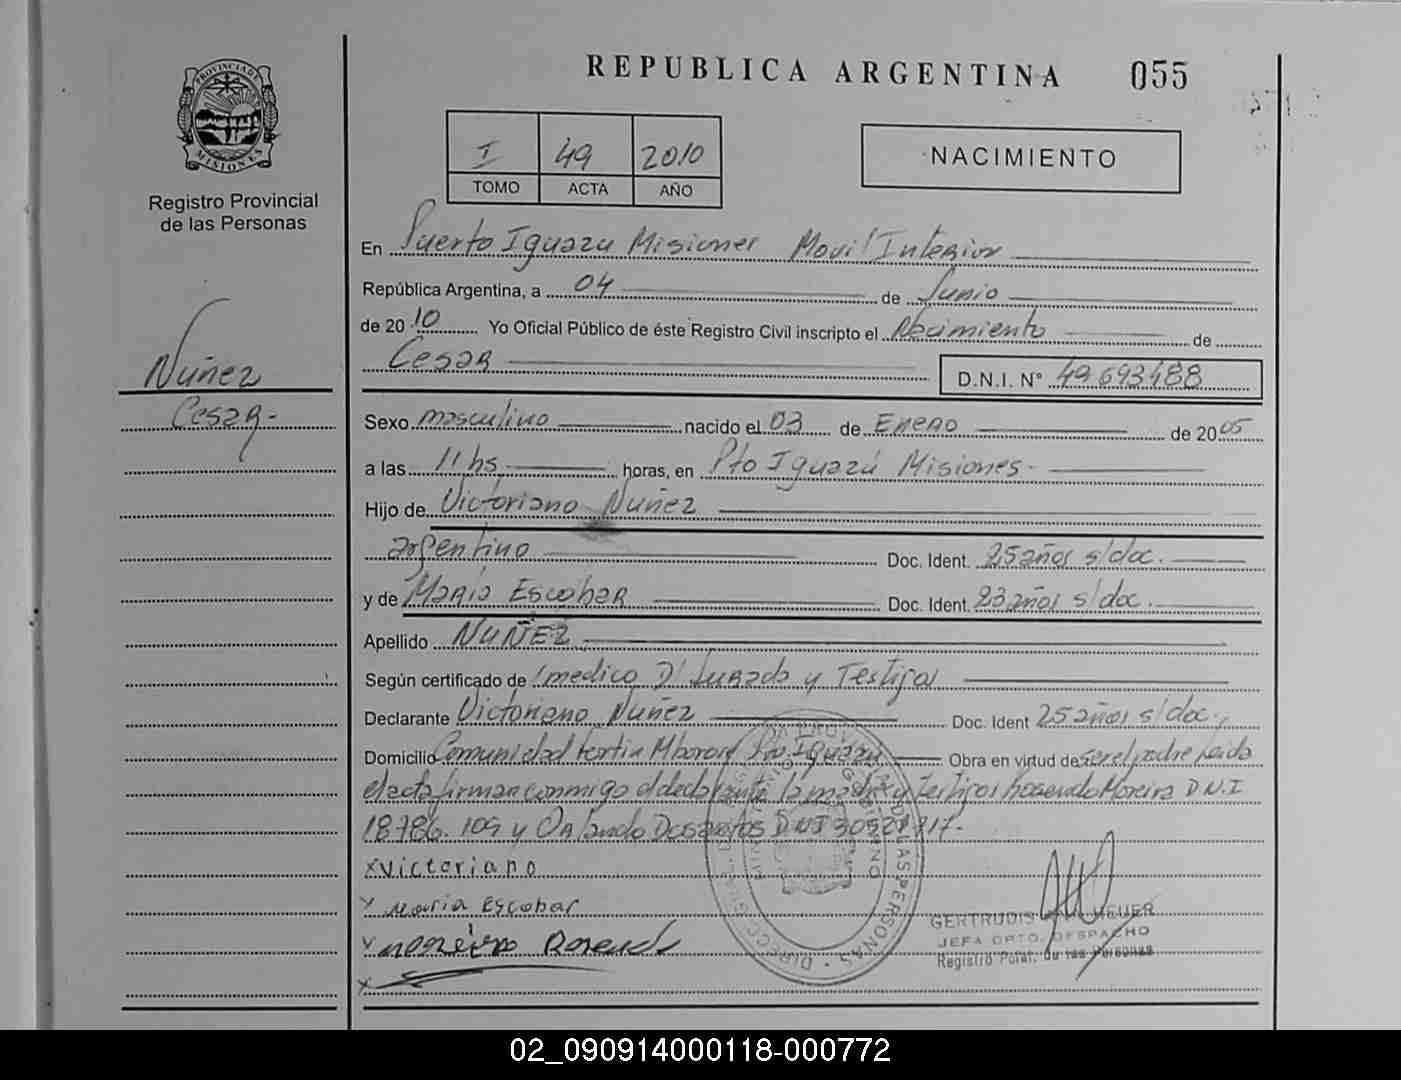 REPUBLICA ARGENTINA 055
PROVINCIA DE MISIONES
Registro Provincial
de las Personas
I 49 2010
TOMO ACTA AÑO
NACIMIENTO
Nuñez
Cesar-
En Puerto Iguazu Misiones Movil Interior
República Argentina, a 04 de Junio
de 2010 Yo Oficial Público de éste Registro Civil inscripto el Nacimiento de
Cesar D.N.I. Nº 49693488
Sexo masculino nacido el 03 de Enero de 2005
a las 11 hs horas, en Pto Iguazú Misiones-
Hijo de Victoriano Nuñez
argentino Doc. Ident. 25 años s/doc.
y de Maria Escobar Doc. Ident. 23 años s/doc.
Apellido NUÑEZ
Según certificado de medico D' Jurada y Testigos
Declarante Victoriano Nuñez Doc. Ident 25 años s/doc.
Domicilio Comunidad Iguazu Obra en virtud de ser el padre Leida
el acta firman conmigo el declarante la madre y testigos Rosendo Moreira D.N.I
18786.109 y Orlando Dosantos DNI
x Victoriano
x Maria Escobar
x Rosendo
x
GERTRUDIS
JEFA DPTO. DESPACHO
Registro de las Personas
02_090914000118-000772